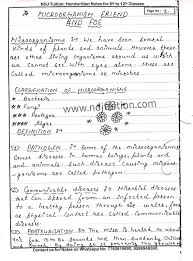 NDJ Tuition: Handwritten Notes for 5th to 12th Classes
MICROORGANISM FRIEND
AND FOE
Page No: 1
Microorganisms :- We have been several
kinds of plants and animals. However there
are other living organisms around us which
we cannot see with eyes alone. these are
called microorganisms or microbes.
CLASSIFICATION OF MICROORGANISMS
* Bacteria
* Fungi
*** Protozoa
**** Algae
www.ndjtuition.com
DEFINITION :-
(1) PATHOGEN :- Some of the microorganisms
cause diseases in human beings, plants and
and animals. Such disease causing micro-
organisms are called pathogen.
(2) Communicable diseases :- Microbial diseases
that can spread from an infected person
to a healthy person through air, water, food
or physical contact are called communicable
diseases.
(3) PASTEURIZATION :- The milk is heated to about
70°C for 15 to 30 seconds and then suddenly
Contact us for Notes on Whatsapp No: